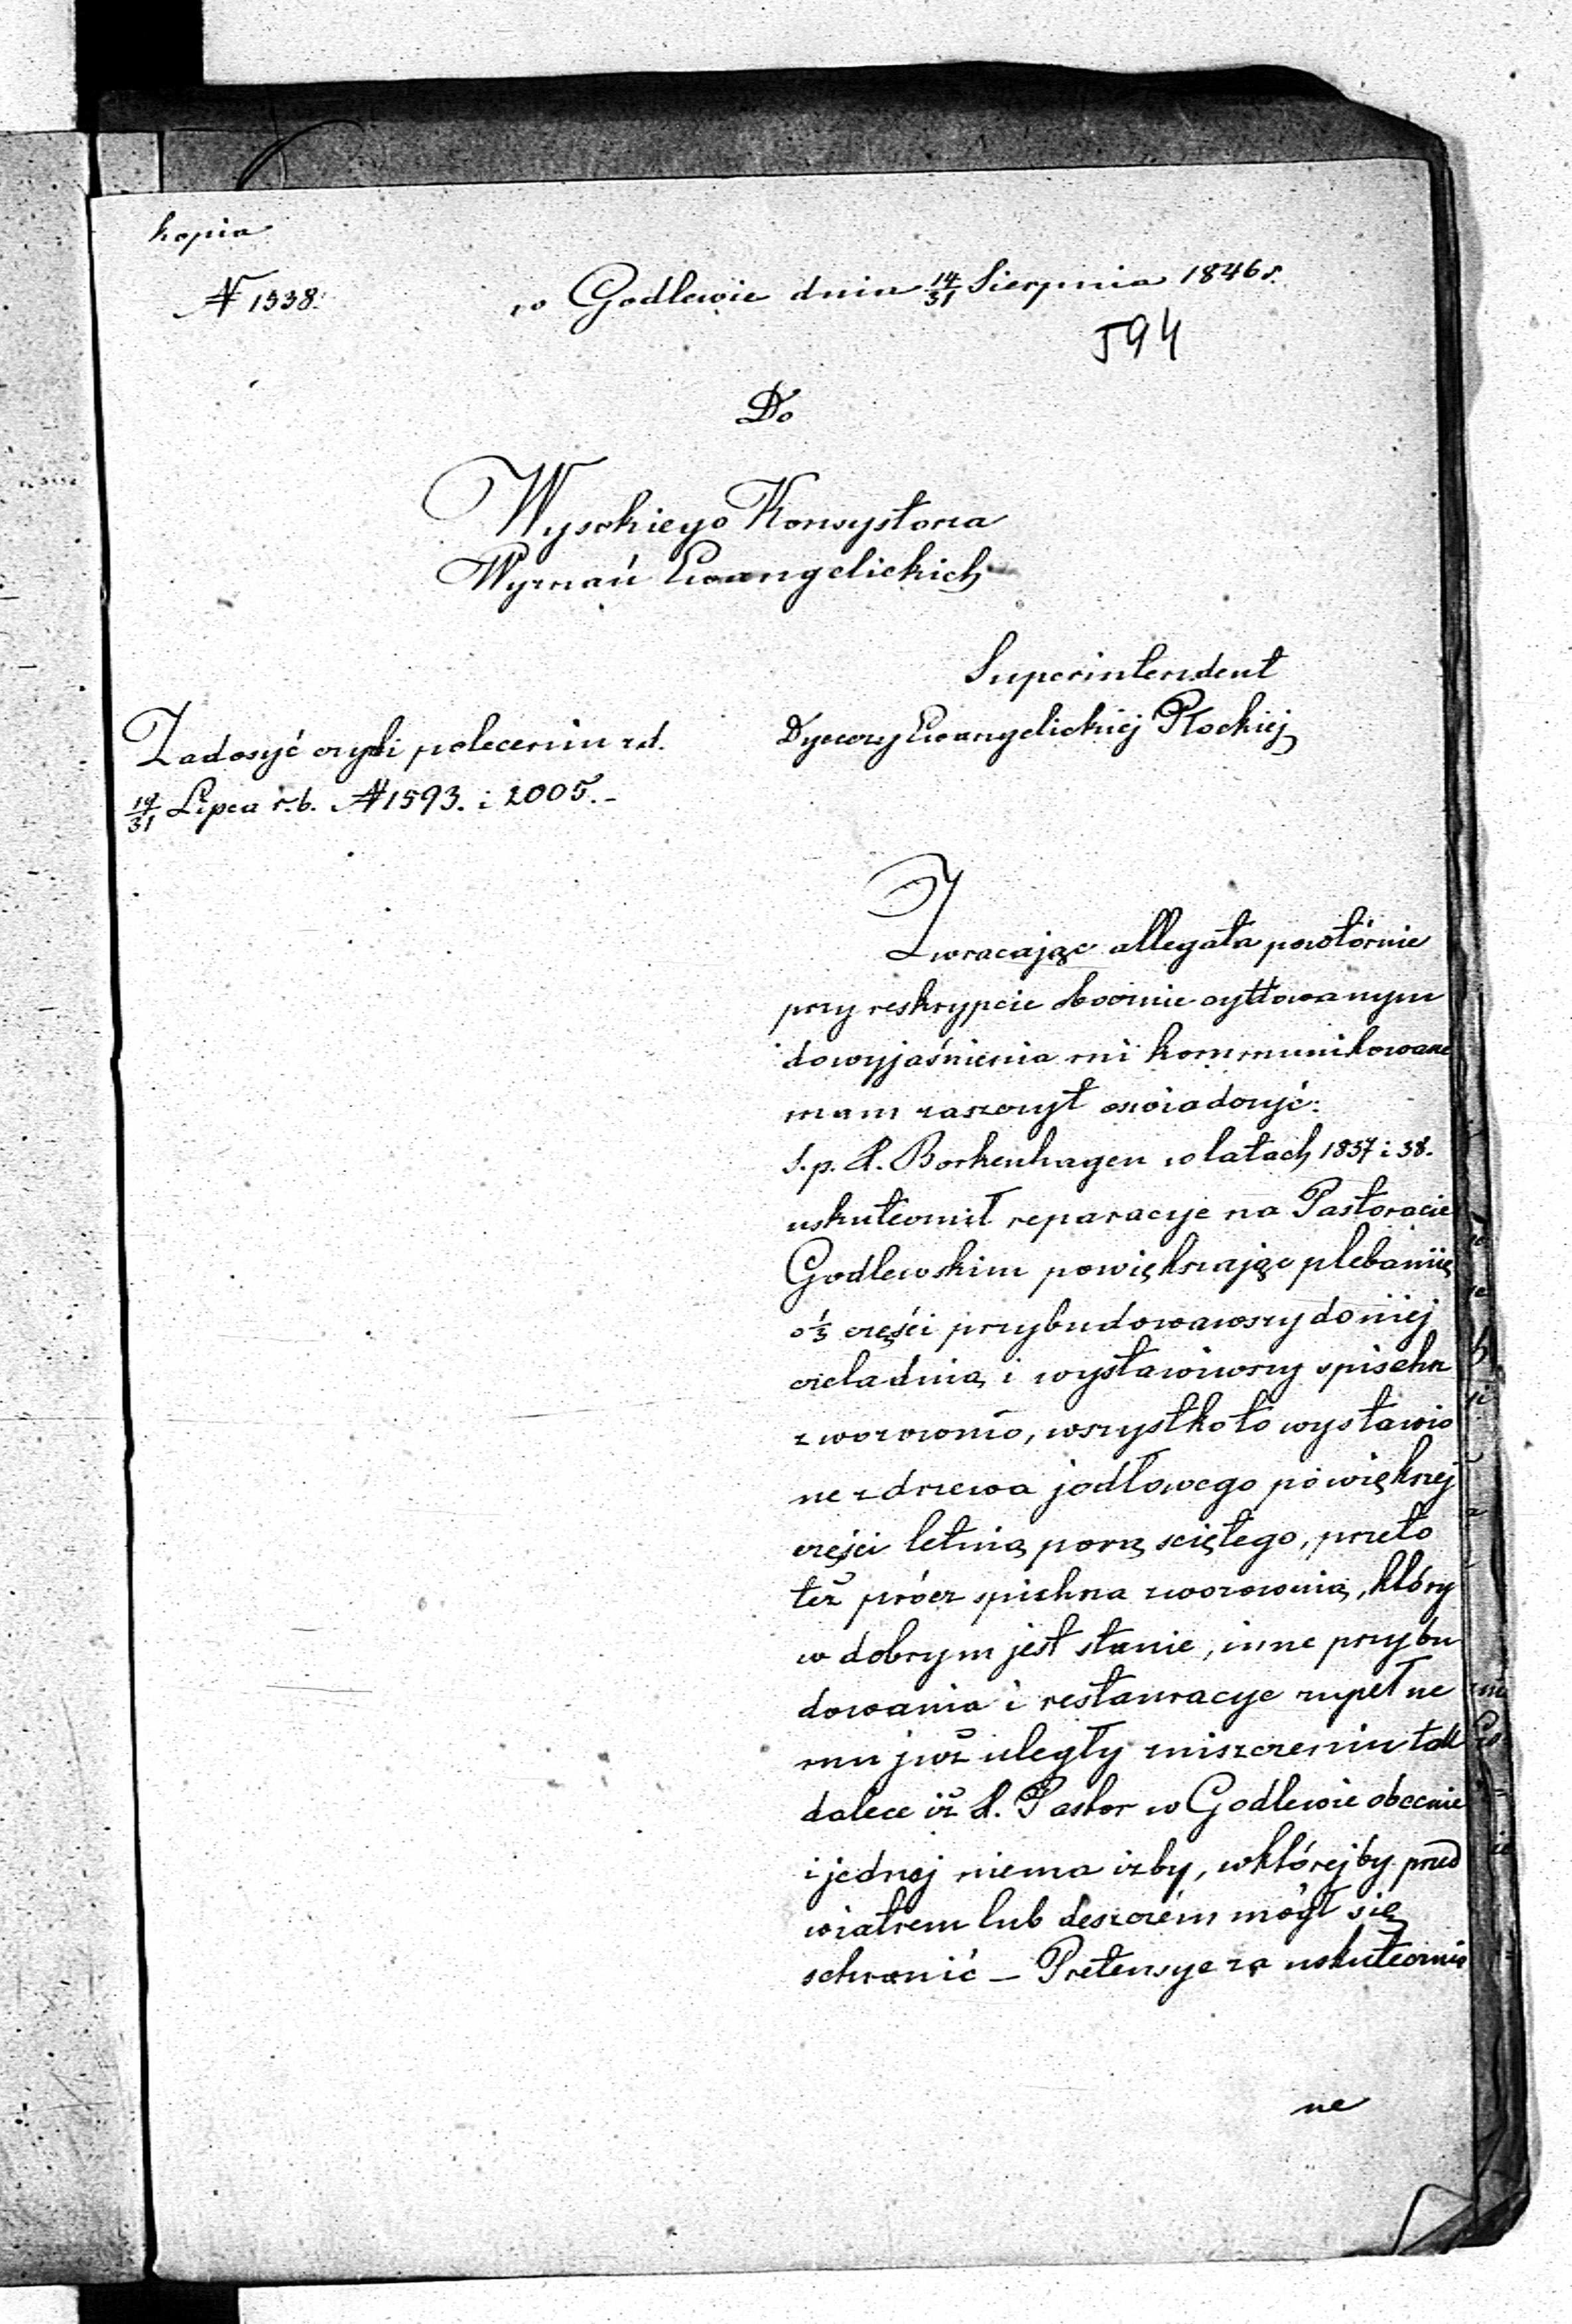 kopia
N 1538.
w Godlewie dnia 14/31 Sierpnia 1846 r.
594
Do
Wysokiego Konsystorza
Wyznań Ewangelickich
Superintendent
Dyecezyi Ewangelickiej Płockiej
Zadosyć czyli poleceniu z d.
19/31 Lipca r.b. N 1593. i 2005.-
Zwracając allegata powtórnie
przy reskrypcie obocznie cyttowanym
do wyjaśnienia mi kommunikowane
mam zaszczyt oswiadczyć:
S.p. X. Borkenhagen w latach 1837 i 38.
uskutecznił reparacye na Pastoracie
Godlewskim powiększając plebaniię
o 1/3 części przybudowawszy do niiej
czeladnią i wystawiwszy spichrz
z wozownią, wszystko to wystawio
ne z drzewa jodłowego po większej
części letnią porą sciętego, przeto
też prócz spichrza z wozownią, który
w dobrym jest stanie, inne przybu
dowania i restauracye zupełne
mu już uległy zniszczeniu tak
dalece iż X. Pastor w Godlewie obecnie
i jednej niema izby, w którejby przed
wiatrem lub deszczem mógł się
schronić – Pretensye za uskutecznio
ne